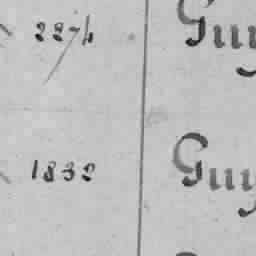 2274 Guy
1832 Guy